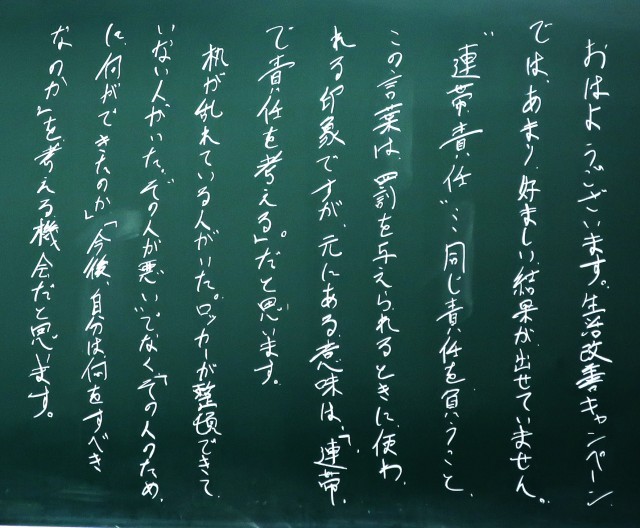 おはようございます。生活改善キャンペーン
では、あまり好ましい結果が出せていません。
"連帯責任"…同じ責任を負うこと、
この言葉は、罰を与えられるときに使わ
れる印象ですが、元にある意味は、「連帯
で責任を考える」。だと思います。
机が乱れている人がいた。ロッカーが整頓できて
いない人がいた。その人が悪い。でなく、「その人のため
に何ができたのか」「今後、自分は何をすべき
なのか」を考える機会だと思います。